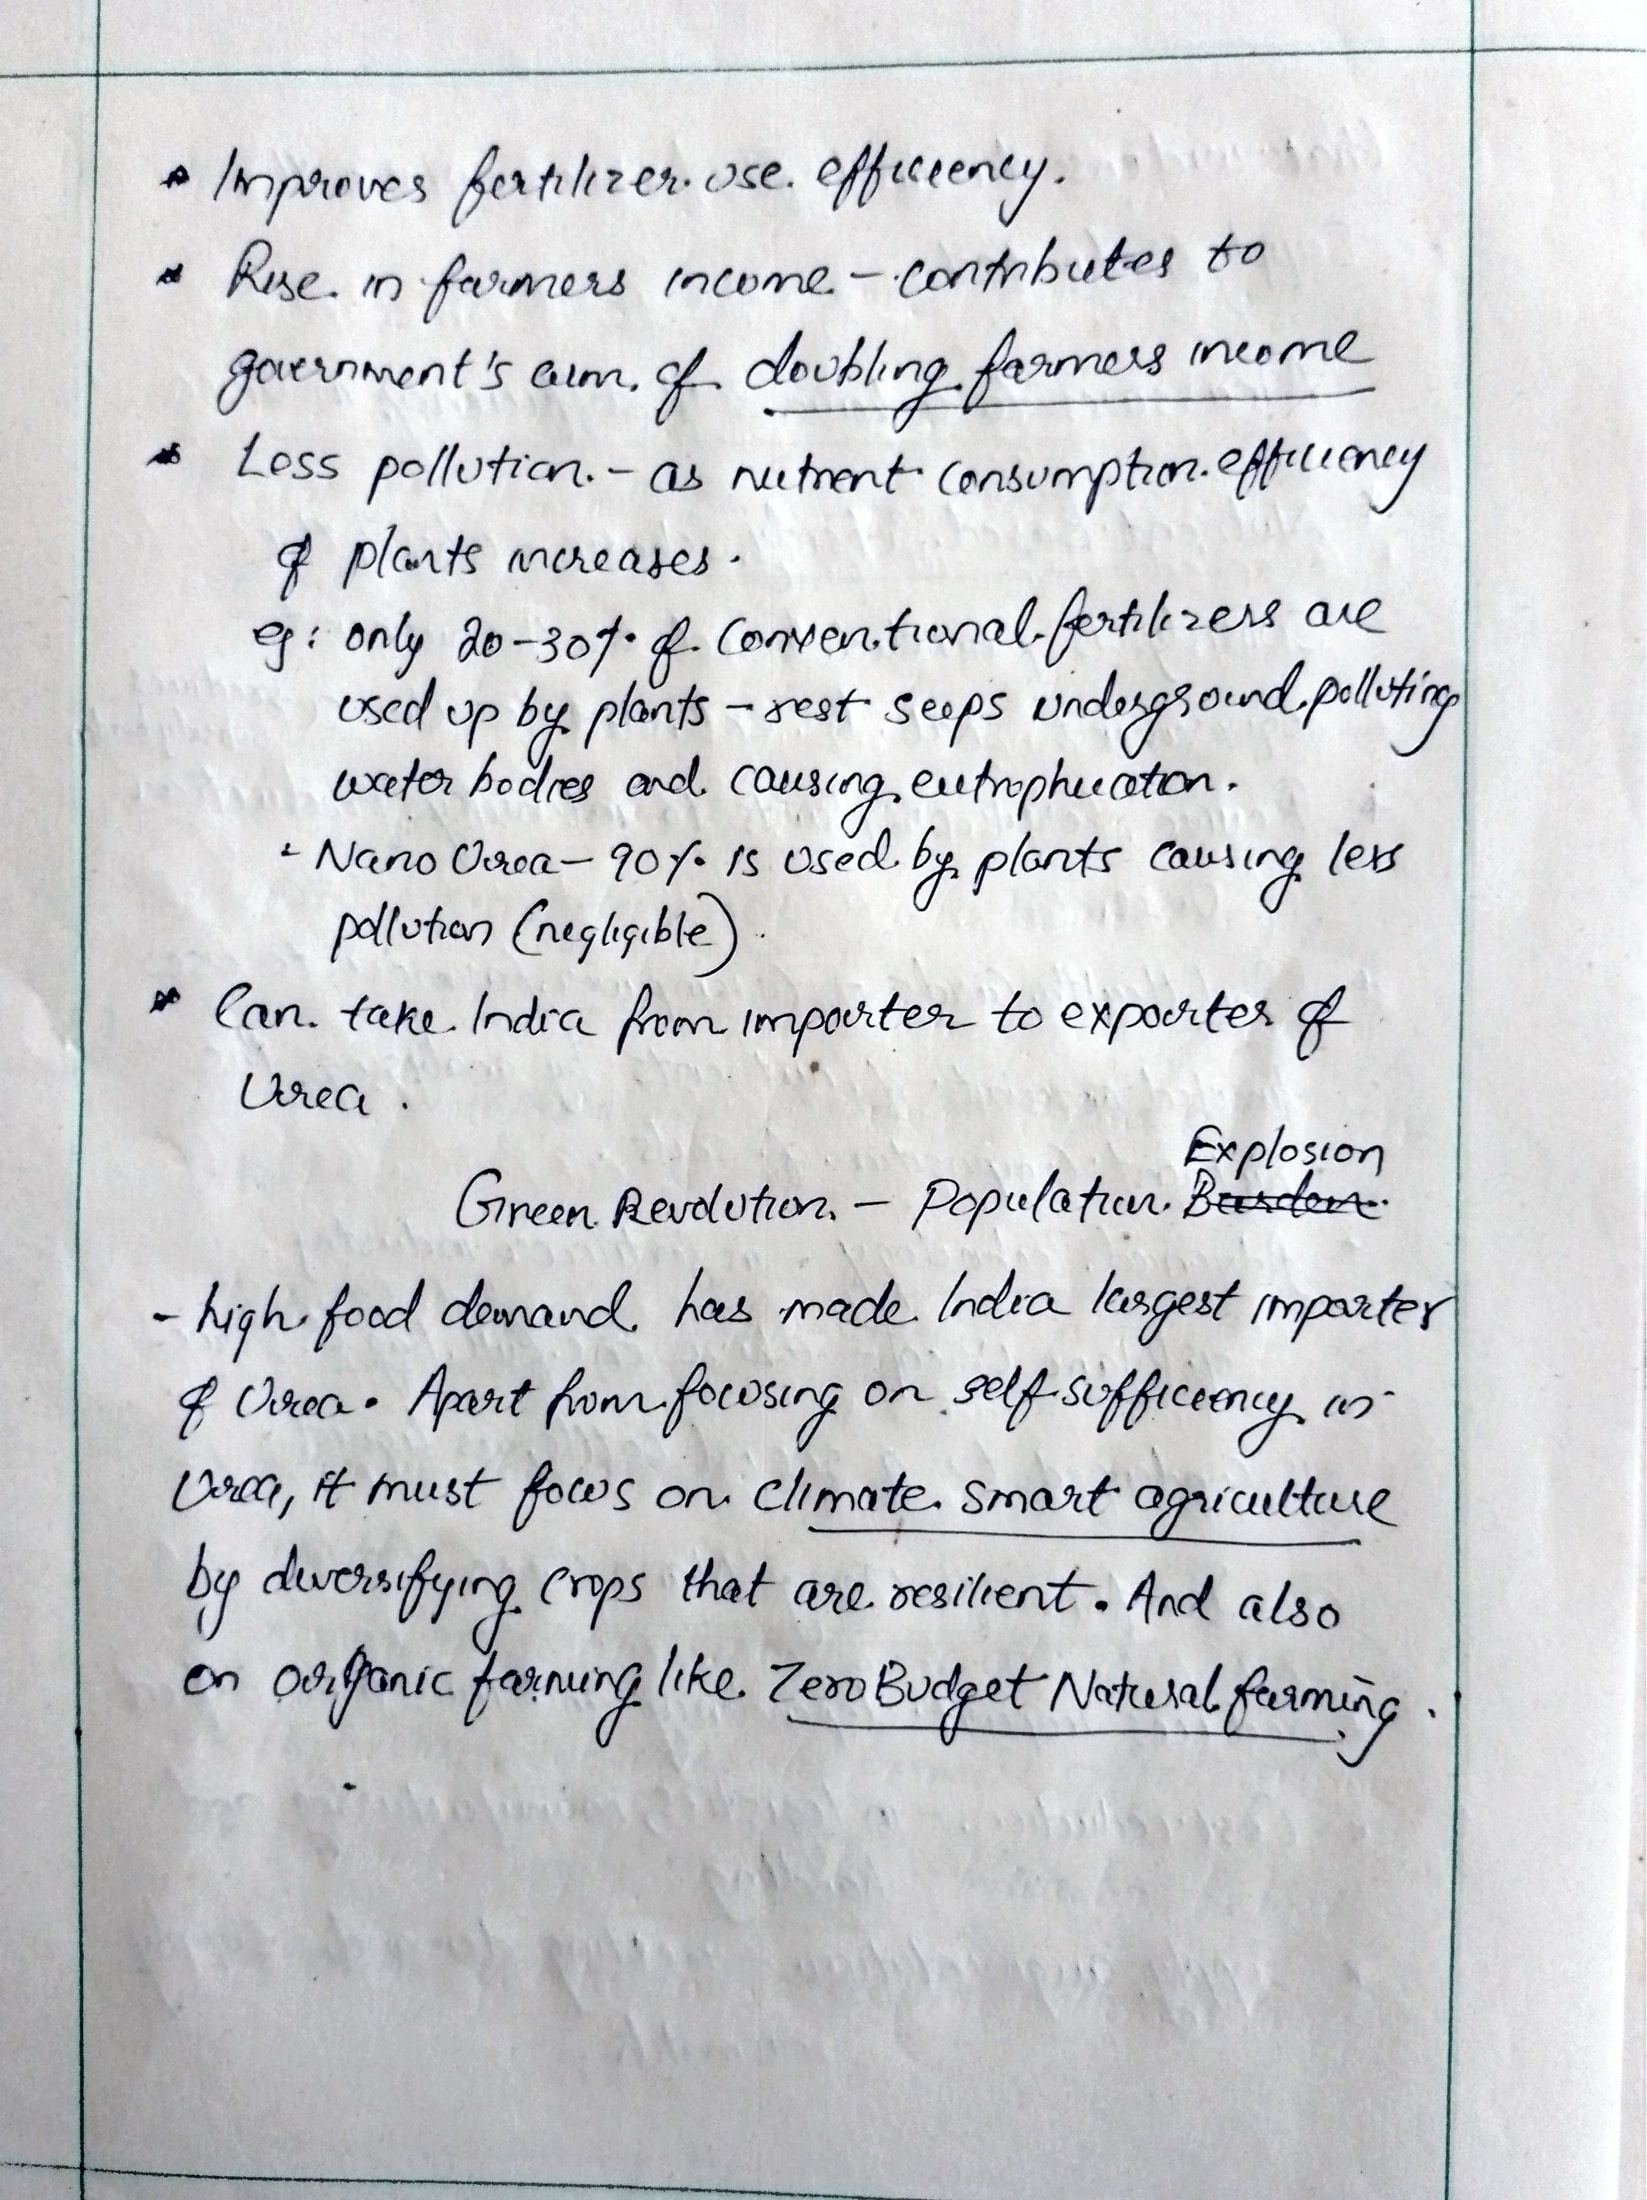 * Improves fertilizer use efficiency.
* Rise in farmers income - contributes to
government's aim of doubling farmers income
* Less pollution - as nutrient consumption efficiency
of plants increases.
eg: only 20-30% of conventional fertilizers are
used up by plants - rest seeps underground polluting
water bodies and causing eutrophication.
Nano Urea - 90% is used by plants causing less
pollution (negligible).
* Can take India from importer to exporter of
Urea.
Explosion
Green Revolution - Population Burden
- high food demand has made India largest importer
of Urea. Apart from focusing on self sufficiency in
Urea, it must focus on climate smart agriculture
by diversifying crops that are resilient. And also
on organic farming like Zero Budget Natural farming.